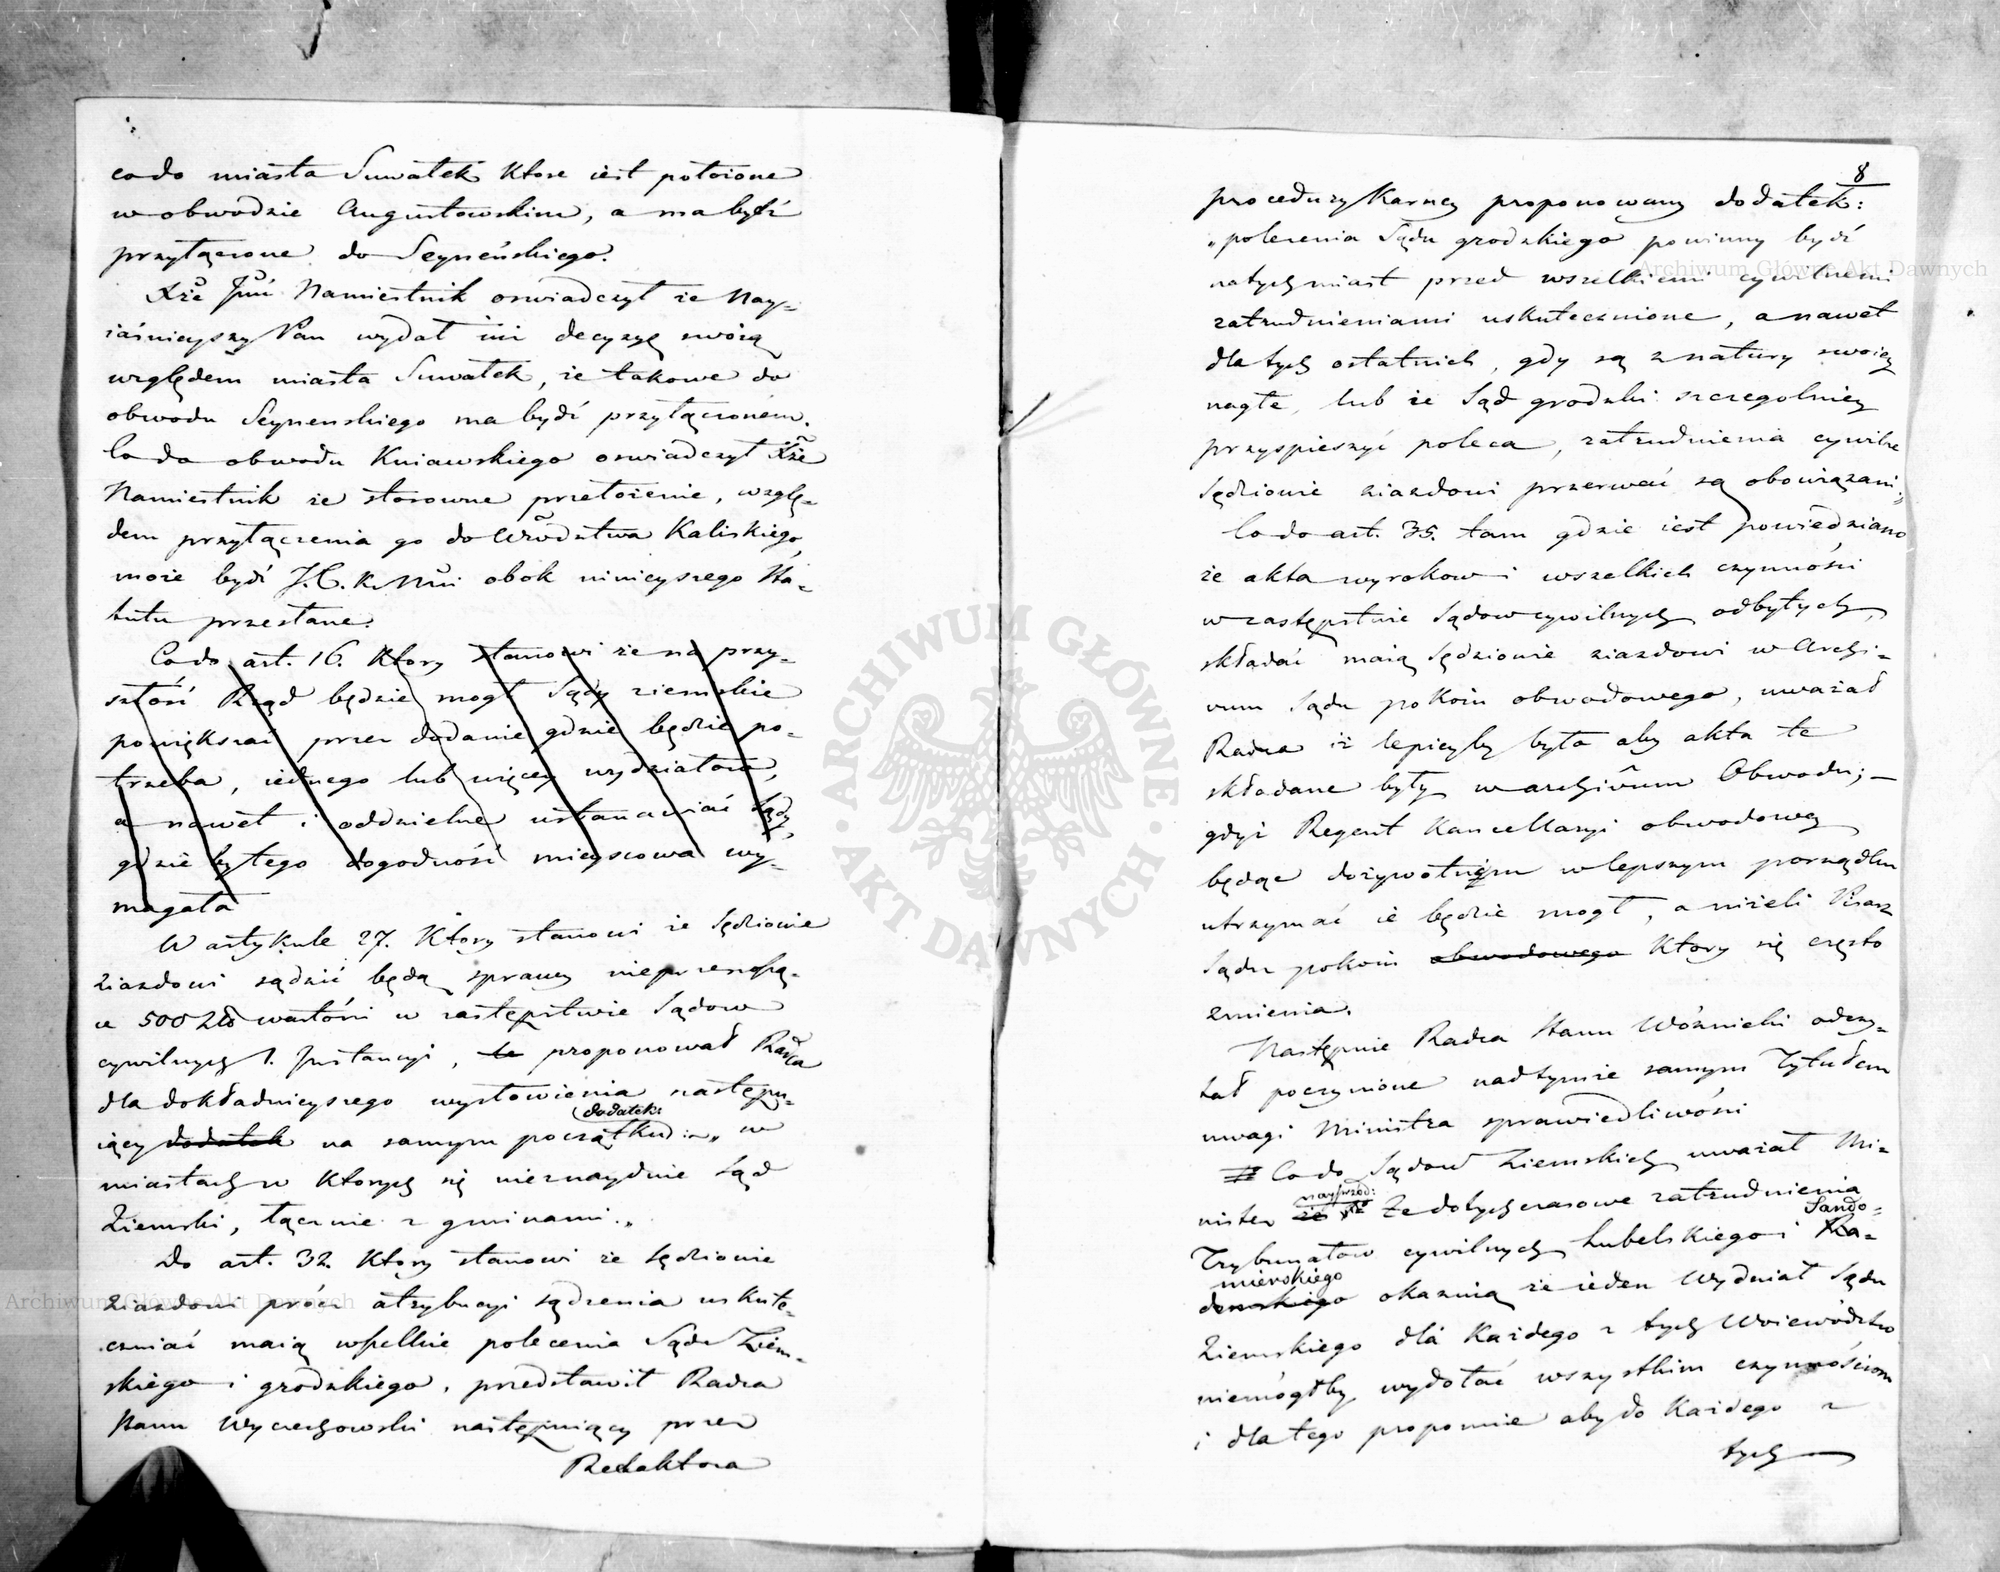 co do miasta Suwałek które iest położone
w obwodzie Augustowskim, a ma bydź
przyłączone do Seyneńskiego.
Xże Jmć Namiestnik oswiadczył że Nay-
iaśnieyszy Pan wydał iuż decyzyę swoią
względem miasta Suwałek, że takowe do
obwodu Seynenskiego ma bydź przyłączoném.
Co do obwodu Kuiawskiego oswiadczył Xże
Namiestnik że stosowne przełożenie, wzglę-
dem przyłączenia go do Wództwa Kaliskiego,
może bydź J. C. K. Mci obok ninieyszego Sta-
tutu przesłane.
Co do art. 16. Ktory stanowi że na przy-
szłość Rząd będzie mogł Sądy ziemskie
powiększać przez dodanie gdzie będzie po-
trzeba, iednego lub więcey wydziałów,
a nawet i oddzielne ustanawiać Sądy,
gdzie by tego dogodność mieyscowa wy-
magała
W artykule 27. Ktory stanowi że Sędziowie
ziazdowi sądzić będą sprawy nieprzenoszą-
ce 500 Zł wartości w zastępstwie Sądow
cywilnych I. Instancyi, te proponował Radca
dla dokładnieyszego wysłowienia następu-
dodatek:
iący dodatek na samym początku: „w
miastach w ktorych się nieznayduie Sąd
Ziemski, łącznie z gminami."
Do art. 32. Ktory stanowi że Sędziowie
Ziazdowi prócz atrybucyi sądzenia uskute-
czniać maią wszelkie polecenia Sądu Ziem-
skiego i grodzkiego, przedstawił Radca
Stanu Wyczechowski następuiący przez
Redaktora
8
procedury Karney proponowany dodatek:
„polecenia Sądu grodzkiego powinny bydź
natychmiast przed wszelkiemi cywilnemi
zatrudnieniami uskutecznione, a nawet
dla tych ostatnich, gdy są z natury swoiey
nagłe, lub że Sąd grodzki szczegolniey
przyspieszyć poleca, zatrudnienia cywilne
Sędziowie ziazdowi przerwać są obowiązani."
Co do art. 35. tam gdzie iest powiedziano
że akta wyrokow i wszelkich czynności
w zastępstwie Sądow cywilnych odbytych,
składać maią Sędziowie ziazdowi w Archi-
vum Sądu pokoiu obwodowego, uważał
Radca iż lepieyby było aby akta te
składane były w archivum Obwodu; —
gdyż Regent Kancellaryi obwodowey
będąc dożywotnim w lepszym porządku
utrzymać ie będzie mogł, a niżeli Pisarz
Sądu pokoiu obwodowego Ktory się często
zmienia.
Następnie Radca Stanu Wóznicki odczy-
tał poczynione nad tymże samym Tytułem
uwagi Ministra sprawiedliwości
# Co do Sądow Ziemskich uważał Mi-
nayprzod:
nister że Ze dotychczasowe zatrudnienia
Sando-
Trybunałow cywilnych Lubelskiego i Ra-
mierskiego
domskiego okazuią że ieden Wydział Sądu
Ziemskiego dla Każdego z tych Woiewództw
niemógłby wydołać wszystkim czynnościom
i dla tego proponuie aby do Każdego z
tych
ARCHIWUM GŁÓWNE AKT DAWNYCH
Archiwum Główne Akt Dawnych
Archiwum Główne Akt Dawnych